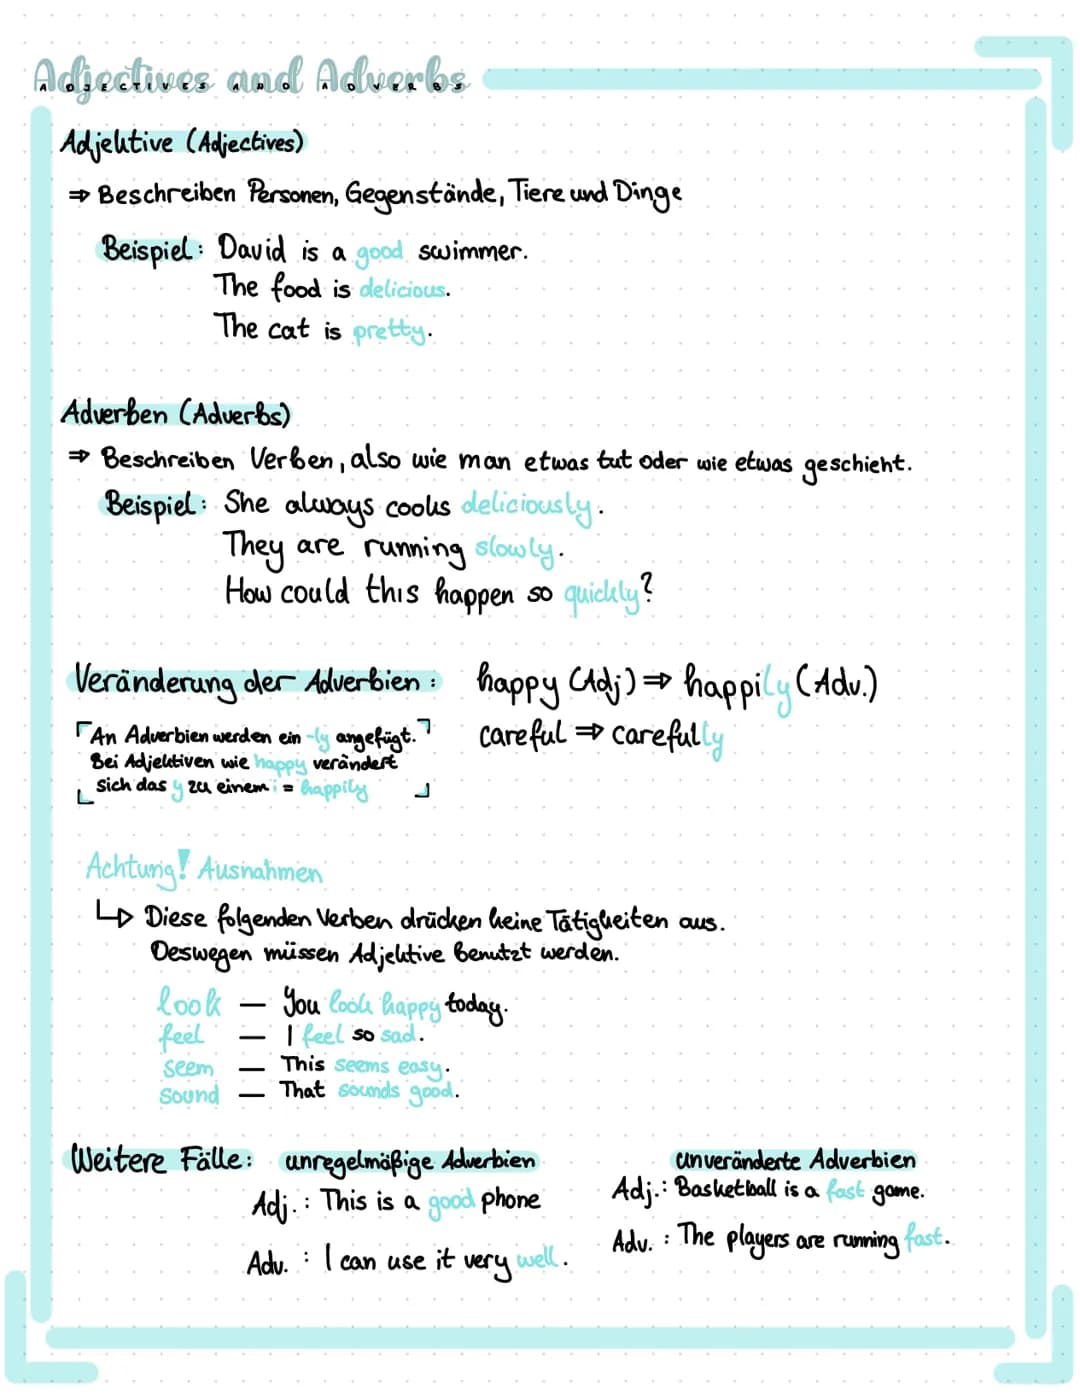 Adjectives and Adverbs
Adjektive (Adjectives)
⇒ Beschreiben Personen, Gegenstände, Tiere und Dinge
Beispiel: David is a good swimmer.
The food is delicious.
The cat is pretty.
Adverben (Adverbs)
⇒ Beschreiben Verben, also wie man etwas tut oder wie etwas geschieht.
Beispiel: She always cooks deliciously.
They are running slowly.
How could this happen so quickly?
Veränderung der Adverbien: happy (Adj) ⇒ happily (Adv.)
careful ⇒ carefully
An Adverbien werden ein -ly angefügt.
Bei Adjektiven wie happy verändert
sich das y zu einem i = happily
Achtung! Ausnahmen
↳ Diese folgenden Verben drücken keine Tätigkeiten aus.
Deswegen müssen Adjektive benutzt werden.
look — You look happy today.
feel — I feel so sad.
seem — This seems easy.
sound — That sounds good.
Weitere Fälle: unregelmäßige Adverbien
Adj.: This is a good phone
Adv. : I can use it very well.
unveränderte Adverbien
Adj.: Basketball is a fast game.
Adv. : The players are running fast.